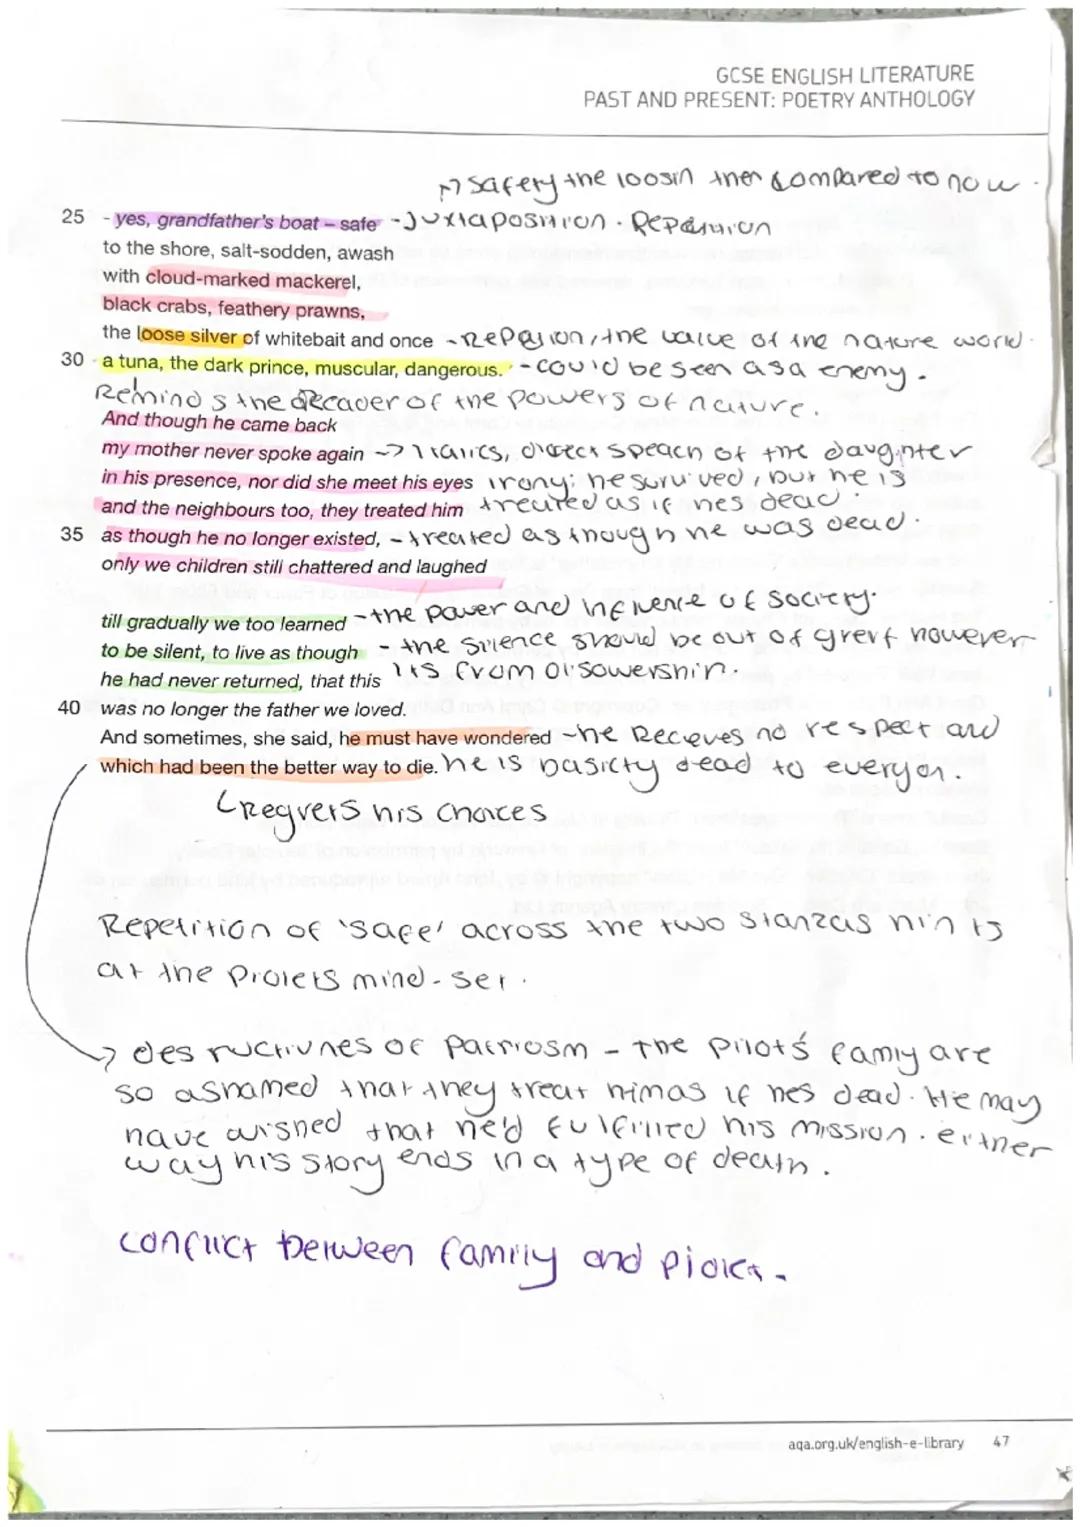 GCSE ENGLISH LITERATURE
PAST AND PRESENT: POETRY ANTHOLOGY
safety the loosin then compared to now.
25 - yes, grandfather's boat – safe - Juxtaposition. Repetition
to the shore, salt-sodden, awash
with cloud-marked mackerel,
black crabs, feathery prawns,
the loose silver of whitebait and once - , the value of the nature world.
30 a tuna, the dark prince, muscular, dangerous. - could be seen as a enemy.
Reminds the of the powers of nature.
And though he came back
my mother never spoke again -> , direct speach of the daughter
in his presence, nor did she meet his eyes irony; he survived, but he is
and the neighbours too, they treated him treated as if hes dead.
35 as though he no longer existed, - treated as though he was dead.
only we children still chattered and laughed
till gradually we too learned - the power and influence of society.
to be silent, to live as though - the silence should be out of greif however
he had never returned, that this its from disowership.
40 was no longer the father we loved.
And sometimes, she said, he must have wondered - he receves no respect and
which had been the better way to die. he is basicty dead to everyon.
regrets his choices
Repetition of 'safe' across the two stanzas hints
at the piolets mind-set.
-> des ructivnes of patriosm - the pilot's famiy are
so ashamed that they treat him as if hes dead. He may
have wished that he'd fulfilled his mission. either
way his story ends in a type of death.
conflict between family and piolet.
aqa.org.uk/english-e-library 47